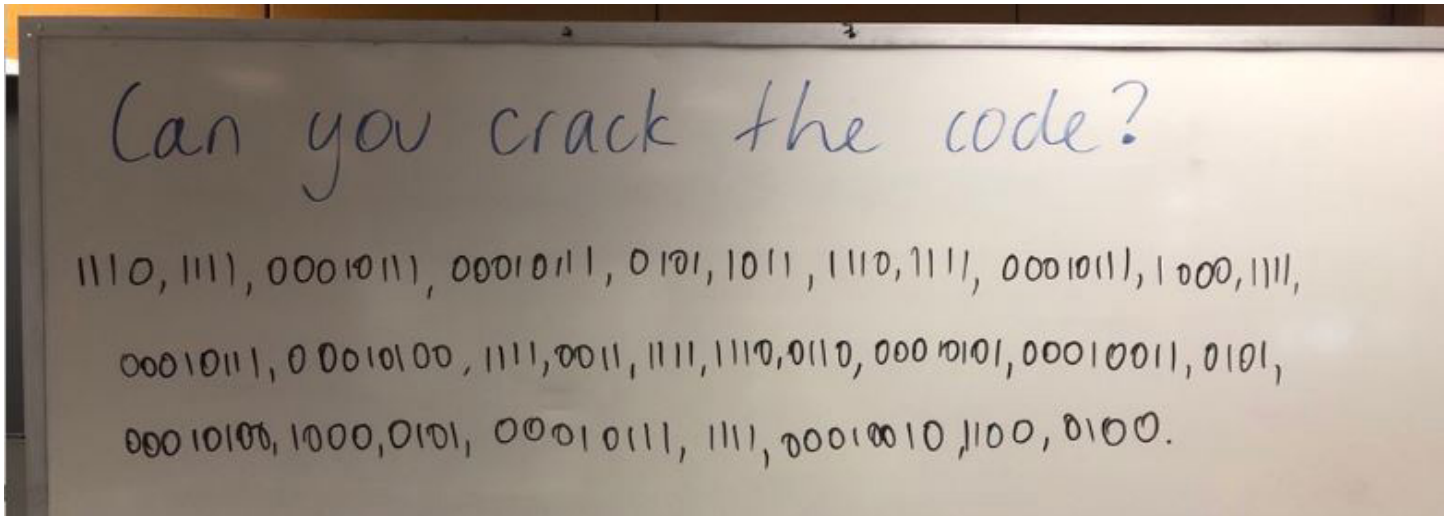 Can you crack the code?
1110, 1111, 00010111, 00010111, 0101, 1011, 1110, 1111, 00010111, 1000, 1111,
00010111, 00010100, 1111, 0011, 1111, 1110, 0110, 00010101, 00010011, 0101,
00010100, 1000, 0101, 00010111, 1111, 00010010, 1100, 0100.